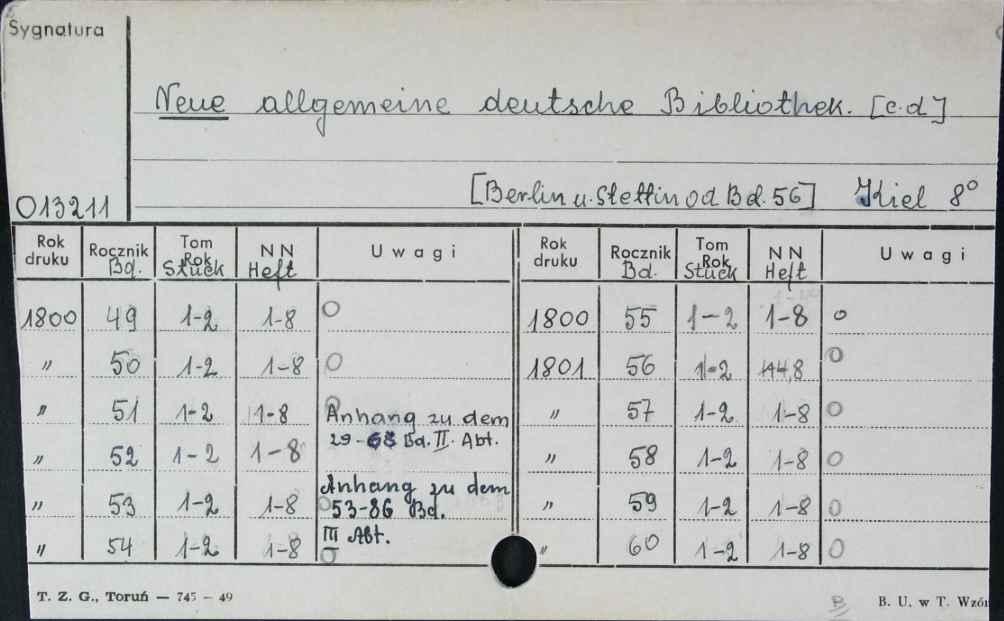 Sygnatura
Neue allgemeine deutsche Bibliothek. [c.d]
[Berlin u. Stettin od Bd. 56] Kiel 8°
013211
Rok druku Rocznik Bd. Tom Rok Stück NN Heft Uwagi Rok druku Rocznik Bd. Tom Rok Stück NN Heft Uwagi
1800 49 1-2 1-8 O 1800 55 1-2 1-8 o
" 50 1-2 1-8 O 1801 56 1-2 8 O
" 51 1-2 1-8 Anhang zu dem " 57 1-2 1-8 O
29- Bd. II. Abt.
" 52 1-2 1-8 " 58 1-2 1-8 O
Anhang zu dem
" 53 1-2 1-8 53-86 Bd. " 59 1-2 1-8 O
III Abt.
" 54 1-2 1-8 O " 60 1-2 1-8 O
T. Z. G., Toruń — 745 - 49
B B. U. w T. Wzór